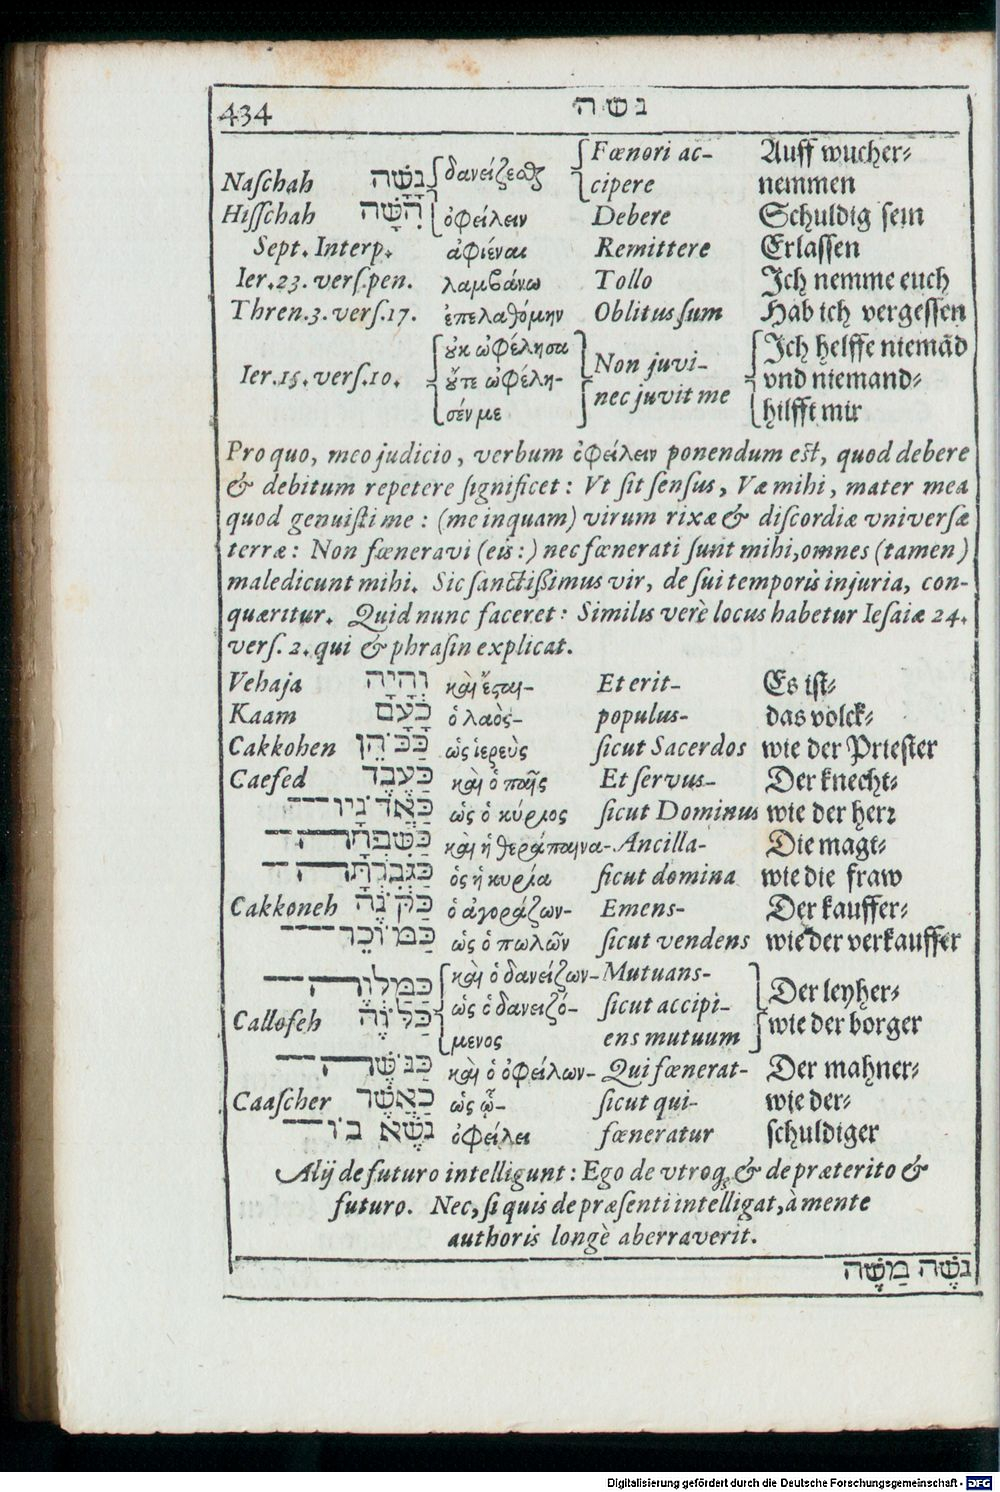 434 נשה
Fœnori ac- Auff wucher⸗
Naſchah נָשָׁה δανείζεσθαι cipere nemmen
Hiſſchah הִשָּׁה ὀφείλειν Debere Schuldig ſein
Sept. Interp. ἀφιέναι Remittere Erlaſſen
Ier. 23. verſ. pen. λαμβάνω Tollo Ich nemme euch
Thren. 3. verſ. 17. ἐπελαθόμην Oblitus ſum Hab ich vergeſſen
οὐκ ὠφέλησα Ich helffe niemãd
Ier. 15. verſ. 10. οὔτε ὠφέλη- Non juvi- vnd niemand⸗
σέν με nec juvit me hilfft mir
Pro quo, meo judicio, verbum ὀφείλειν ponendum eſt, quod debere
& debitum repetere ſignificet: Vt ſit ſenſus, Væ mihi, mater mea
quod genuiſti me: (me inquam) virum rixæ & diſcordiæ vniverſæ
terræ: Non fœneravi (eis:) nec fœnerati ſunt mihi, omnes (tamen)
maledicunt mihi. Sic ſanctiſſimus vir, de ſui temporis injuria, con-
quæritur. Quid nunc faceret: Similis verè locus habetur Ieſaiæ 24.
verſ. 2. qui & phraſin explicat.
Vehaja וְהָיָה καὶ ἔσται- Et erit- Es iſt⸗
Kaam כָעָם ὁ λαὸς- populus- das volck⸗
Cakkohen כַּכֹּהֵן ὡς ἱερεὺς ſicut Sacerdos wie der Prieſter
Caefed כַּעֶבֶד καὶ ὁ παῖς Et ſervus- Der knecht⸗
כַּאדֹנָיו ὡς ὁ κύριος ſicut Dominus wie der herꝛ
כַּשִּׁפְחָה καὶ ἡ θεράπαινα- Ancilla- Die magt⸗
כַּגְּבִרְתָּהּ ὁς ἡ κυρία ſicut domina wie die fraw
Cakkoneh כַּקּוֹנֶה ὁ ἀγοράζων- Emens- Der kauffer⸗
כַּמּוֹכֵר ὡς ὁ πωλῶν ſicut vendens wie der verkauffer
כַּמַּלְוֶה καὶ ὁ δανείζων- Mutuans- Der leyher⸗
Callofeh כַּלֹּוֶה ὡς ὁ δανειζό- ſicut accipi- wie der borger
μενος ens mutuum
כַּנֹּשֶׁה καὶ ὁ ὀφείλων- Qui fœnerat- Der mahner⸗
Caaſcher כַּאֲשֶׁר ὡς ᾧ- ſicut qui- wie der⸗
נֹשֶׁא בוֹ ὀφείλει fœneratur ſchuldiger
Alij de futuro intelligunt: Ego de vtroq; & de præterito &
futuro. Nec, ſi quis de præſenti intelligat, à mente
authoris longè aberraverit.
נֹשֶׁה מַשֶּׁה
Digitalisierung gefördert durch die Deutsche Forschungsgemeinschaft - DFG